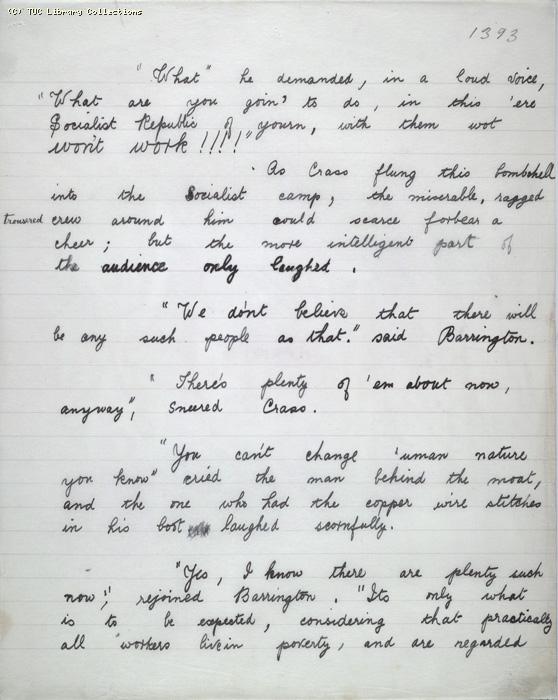 (C) TUC Library Collections
1393
"What" he demanded, in a loud voice,
"What are you goin' to do, in this 'ere
Socialist Republic of yourn, with them wot
won't work!!!!"
As Crass flung this bombshell
into the Socialist camp, the miserable, ragged
trousered crew around him could scarce forbear a
cheer; but the more intelligent part of
the audience only laughed.
"We don't believe that there will
be any such people as that." said Barrington.
"There's plenty of 'em about now,
anyway", sneered Crass.
"You can't change 'uman nature
you know" cried the man behind the moat,
and the one who had the copper wire stitches
in his boot laughed scornfully.
"Yes, I know there are plenty such
now", rejoined Barrington. "Its only what
is to be expected, considering that practically
all workers live in poverty, and are regarded